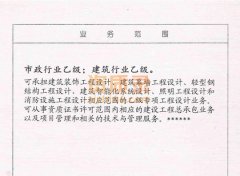 业务范围
市政行业乙级；建筑行业乙级。
可承担建筑装饰工程设计、建筑幕墙工程设计、轻型钢
结构工程设计、建筑智能化系统设计、照明工程设计和
消防设施工程设计相应范围的乙级专项工程设计业务。
可从事资质证书许可范围内相应的建设工程总承包业务
以及项目管理和相关的技术与管理服务。******